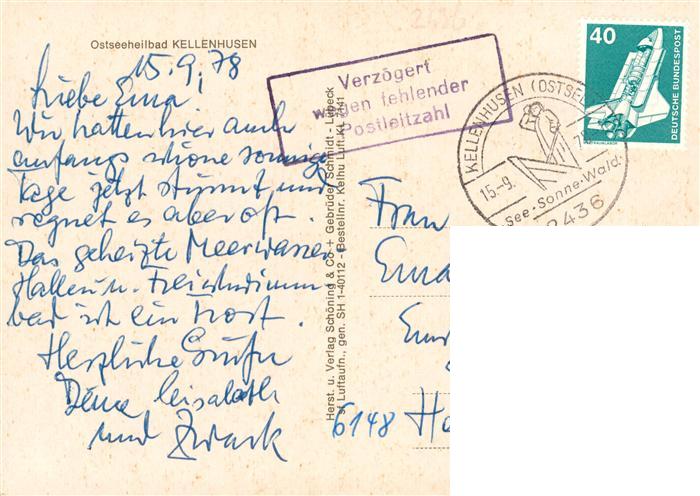 Ostseeheilbad KELLENHUSEN
15.9.78
Liebe Erna!
Wir hatten hier auch
anfangs schöne sonnige
Tage jetzt stürmt und
regnet es aber oft.
Das geheizte Meerwasser
Hallen u. Freischwimm
bad ist ein Trost.
Herzliche Grüße
Deine
und
Herst. u. Verlag Schöning & Co + Gebrüder Schmidt - Lübeck
Luftaufn., gen. SH 1-40112 - Bestellnr. Kelhu Luft.KL
Verzögert
wegen fehlender
Postleitzahl
KELLENHUSEN (OSTSEE
15.-9.
See·Sonne·Wald·
2436
40
DEUTSCHE BUNDESPOST
Frau
6148